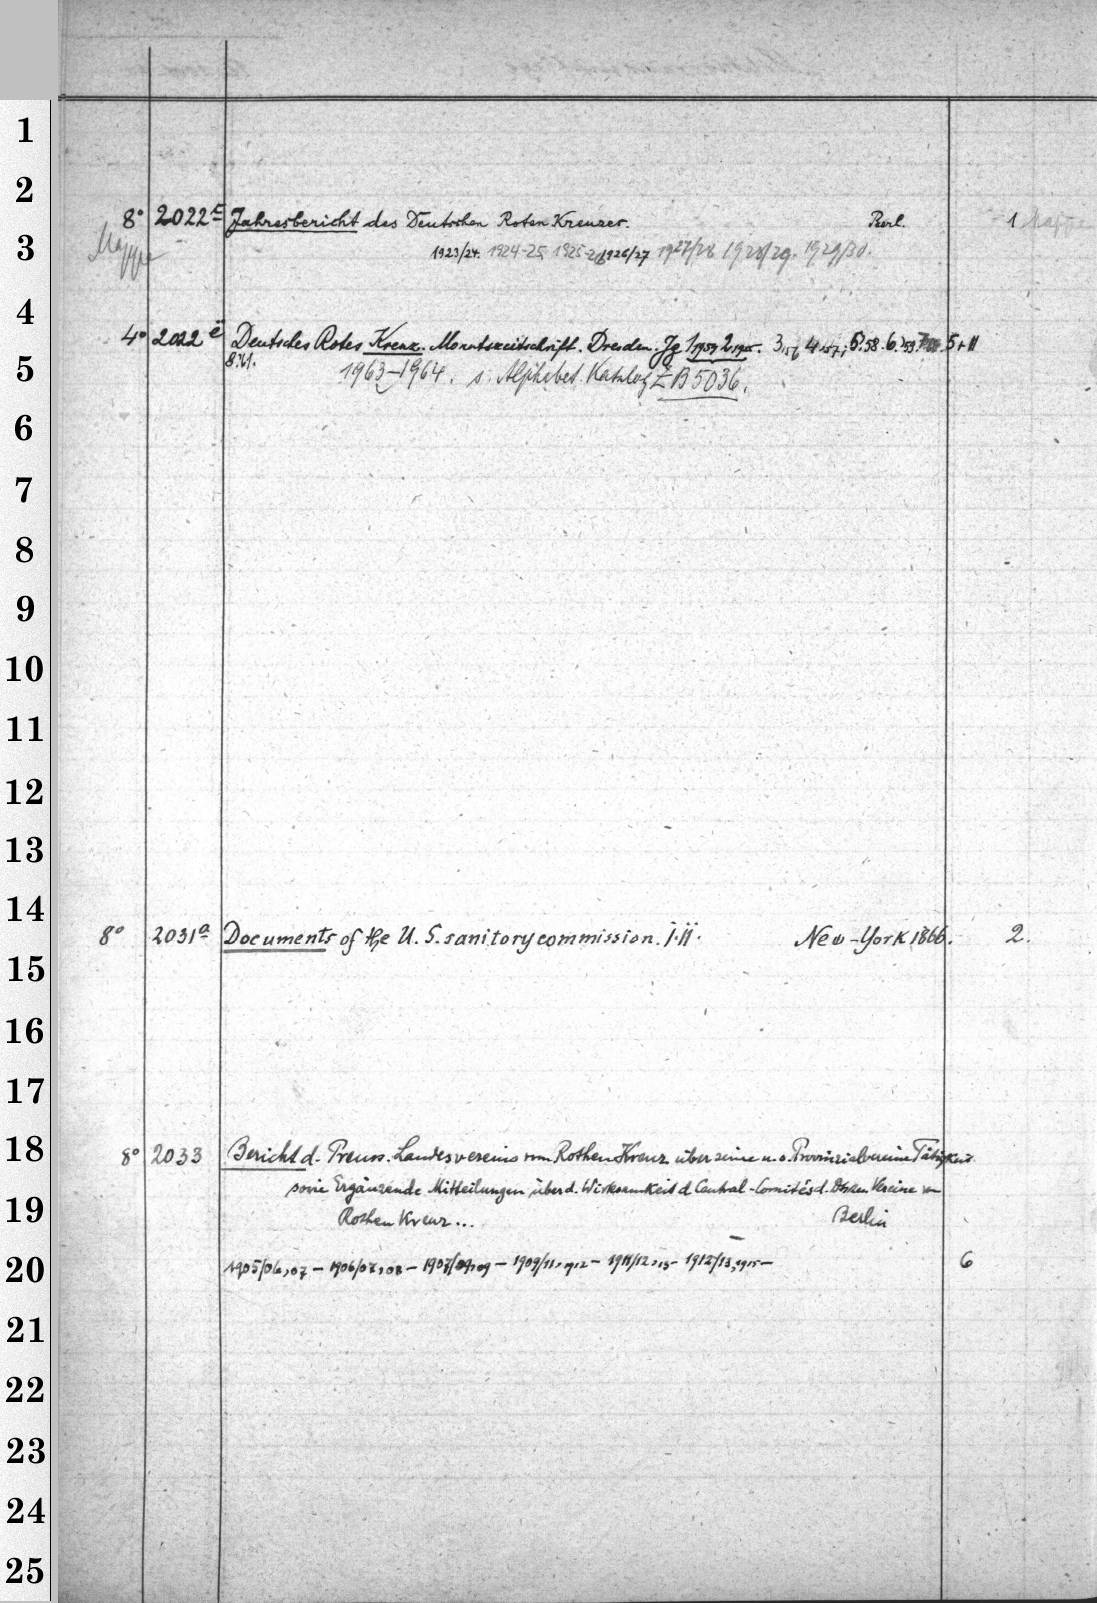 1
2
8° 2022 Jahresbericht des Deutschen Roten Kreuzes. Berl. 1 Mappe
3
Mappe
1923/24. 1924-25, 1925-26 1926/27 1927/28 1928/29. 1929/30.
4
4° 2022 ë Deutsches Rotes Kreuz. Monatszeitschrift. Dresden. Jg 2 3,56 4,57; 5.58. 6.59. 5+II
5
1963-1964. s. Alphabet. Katalog ZB5036.
6
7
8
9
10
11
12
13
14
8° 2031a Documents of the U. S. sanitory commission. I.II. New-York 1866. 2.
15
16
17
18
8° 2033 Bericht d. Preuss. Landesvereins vom Rothen Kreuz über seine u. s. Provinzialvereine Tätigkeit
sowie Ergänzende Mitteilungen über d. Wirksamkeit d. Central-Comités d. Dtschen Vereine vom
19
Rothen Kreuz... Berlin
20
1905/06,07 – 1906/07,08 – 1907/09,09 – 1909/11,1912 – 1911/12,13 – 1912/13,1915 – 6
21
22
23
24
25